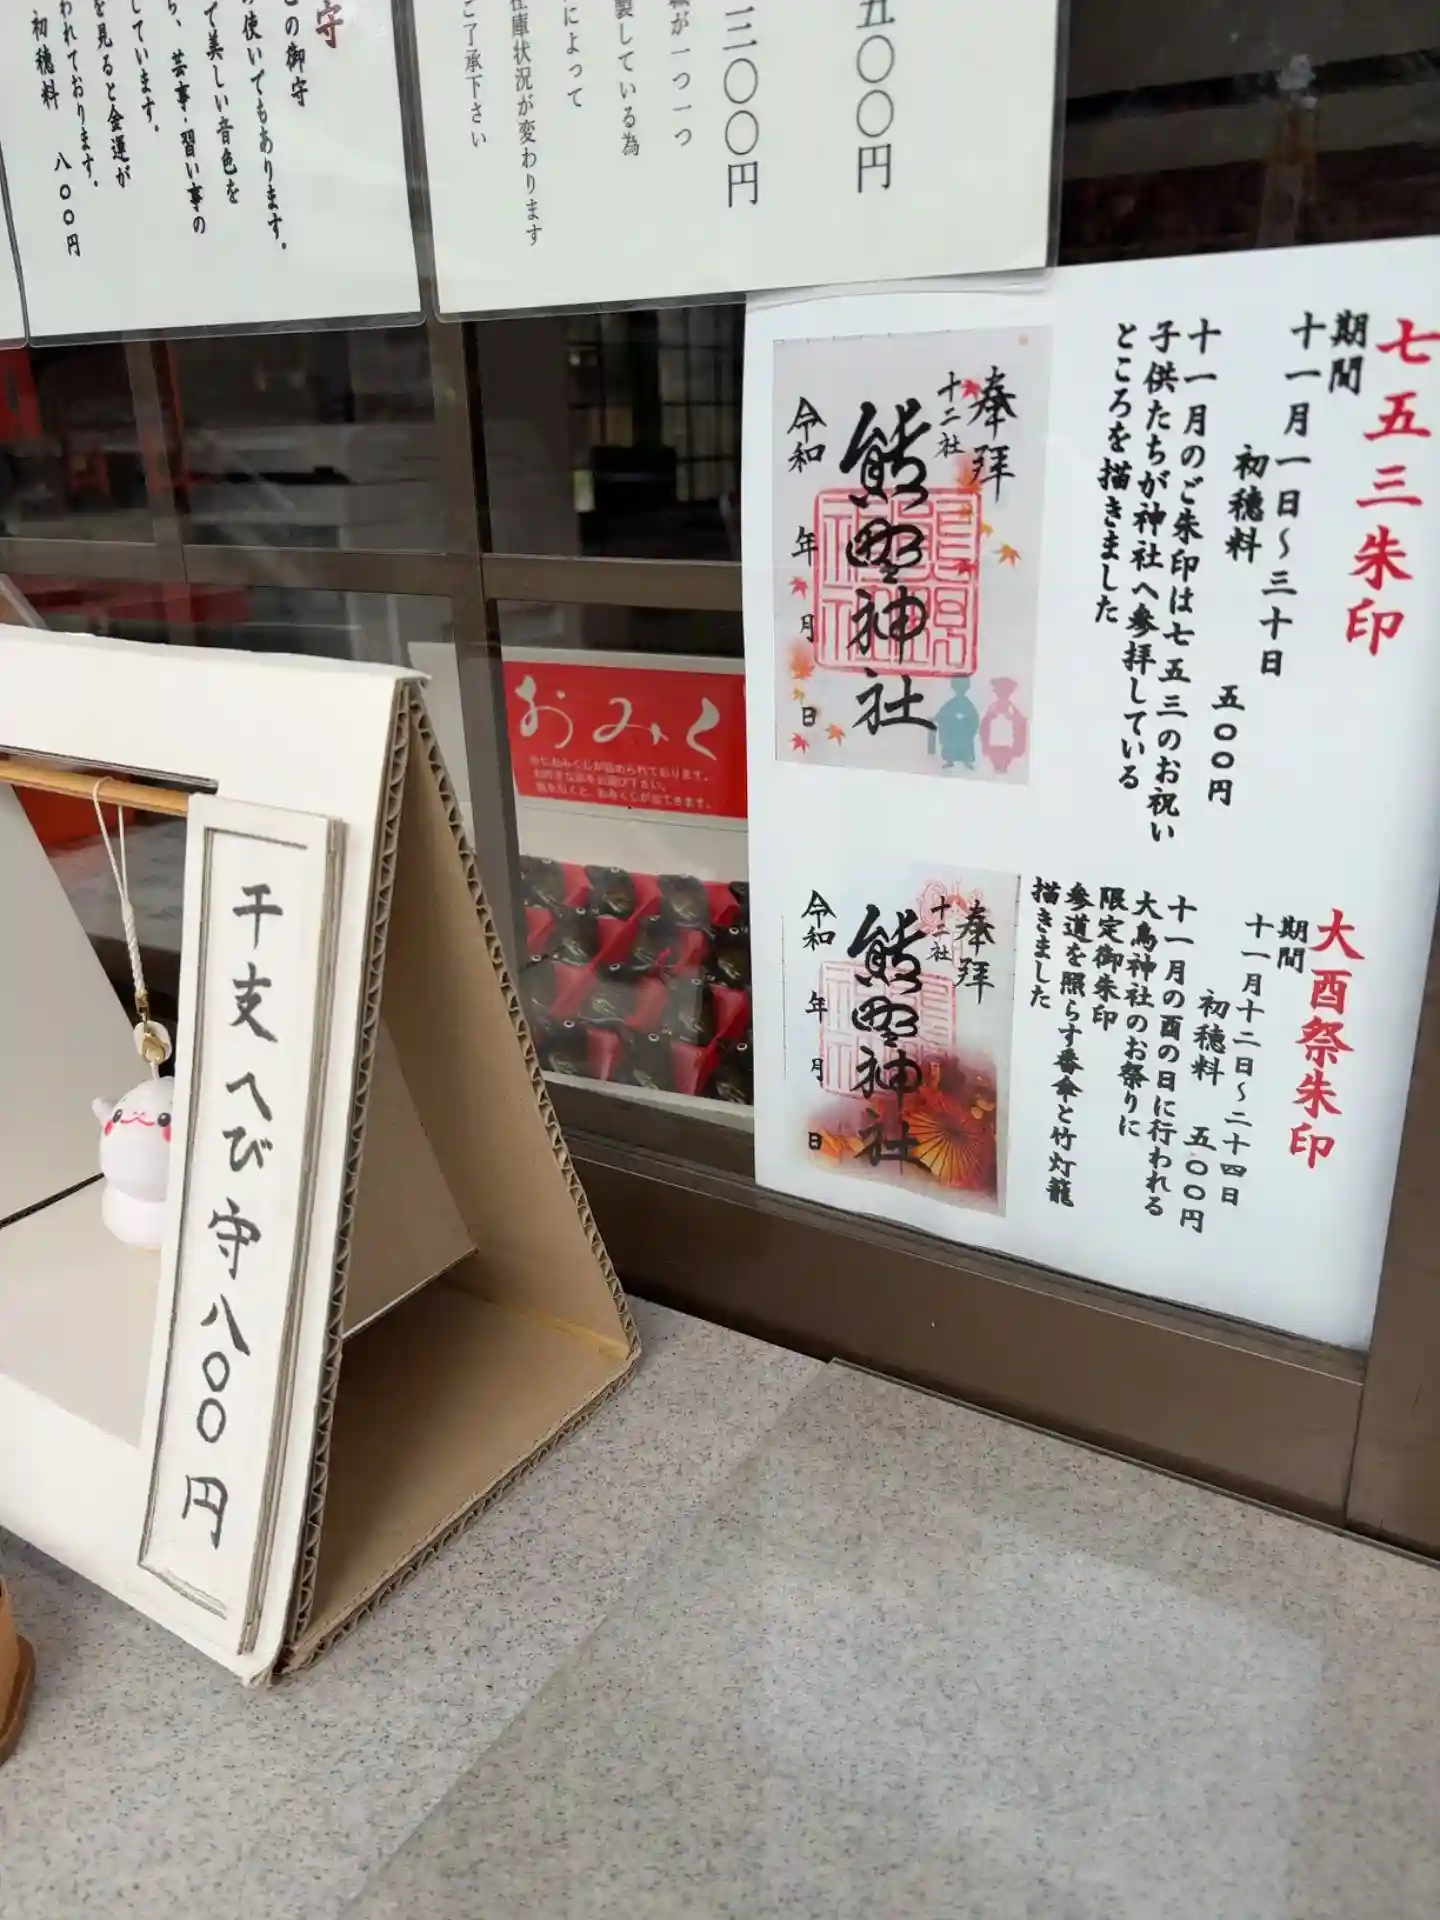 七五三朱印
期間
十一月一日～三十日
初穂料　五〇〇円
十一月のご朱印は七五三のお祝い
子供たちが神社へ参拝している
ところを描きました
奉拝
十二社
熊野神社
令和　年　月　日
大酉祭朱印
期間
十一月十二日～二十四日
初穂料　五〇〇円
十一月の酉の日に行われる
大鳥神社のお祭りに
限定御朱印
参道を照らす番傘と竹灯籠
描きました
奉拝
十二社
熊野神社
令和　年　月　日
五〇〇円
三〇〇円
が一つ一つ
製している為
によって
在庫状況が変わります
ご了承下さい
守
この御守
使いでもあります。
で美しい音色を
ら、芸事・習い事の
しています。
を見ると金運が
われております。
初穂料　八〇〇円
おみく
中におみくじが詰められております。
お好きな物をお選び下さい。
おみくじが出てきます。
干支へび守八〇〇円